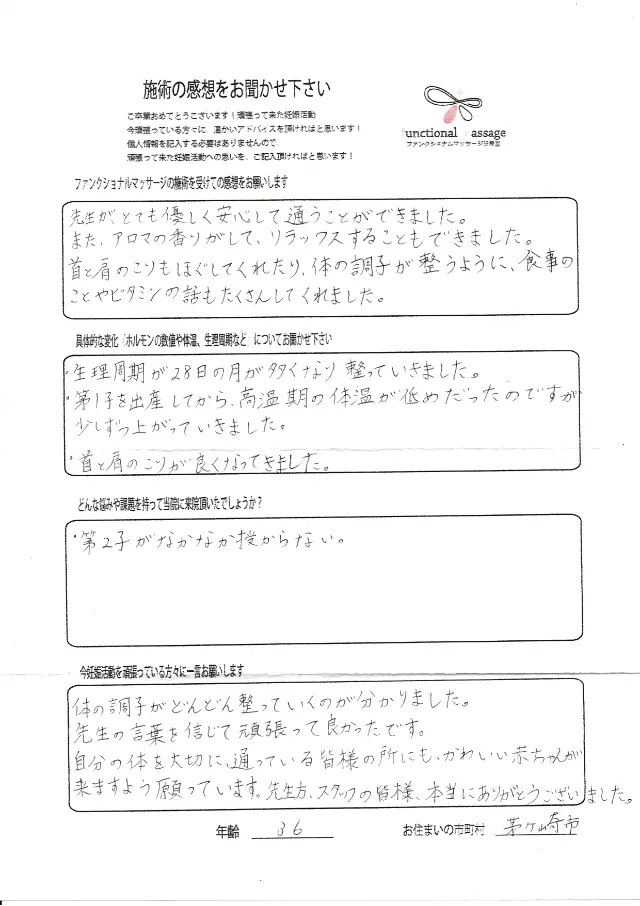 施術の感想をお聞かせ下さい
ご卒業おめでとうございます！頑張って来た妊娠活動
今頑張っている方々に、温かいアドバイスを頂ければと思います！
個人情報を記入する必要はありませんので、
頑張って来た妊娠活動への思いを、ご記入頂ければと思います！
unctional assage
ファンクショナルマッサージ治療室
ファンクショナルマッサージの施術を受けての感想をお願いします
先生が、とても優しく安心して通うことができました。
また、アロマの香りがして、リラックスすることもできました。
首と肩のこりもほぐしてくれたり、体の調子が整うように、食事の
ことやビタミンの話もたくさんしてくれました。
具体的な変化「ホルモンの数値や体温、生理周期など」についてお聞かせ下さい
・生理周期が28日の月が多くなり整っていきました。
・第1子を出産してから、高温期の体温が低めだったのですが
少しずつ上がっていきました。
・首と肩のこりが良くなってきました。
どんな悩みや課題を持って当院に来院頂いたでしょうか？
・第2子がなかなか授からない。
今妊娠活動を頑張っている方々に一言お願いします
体の調子がどんどん整っていくのが分かりました。
先生の言葉を信じて頑張って良かったです。
自分の体を大切に、通っている皆様の所にも、かわいい赤ちゃんが
来ますよう願っています。先生方、スタッフの皆様、本当にありがとうございました。
年齢 36 お住まいの市町村 茅ヶ崎市